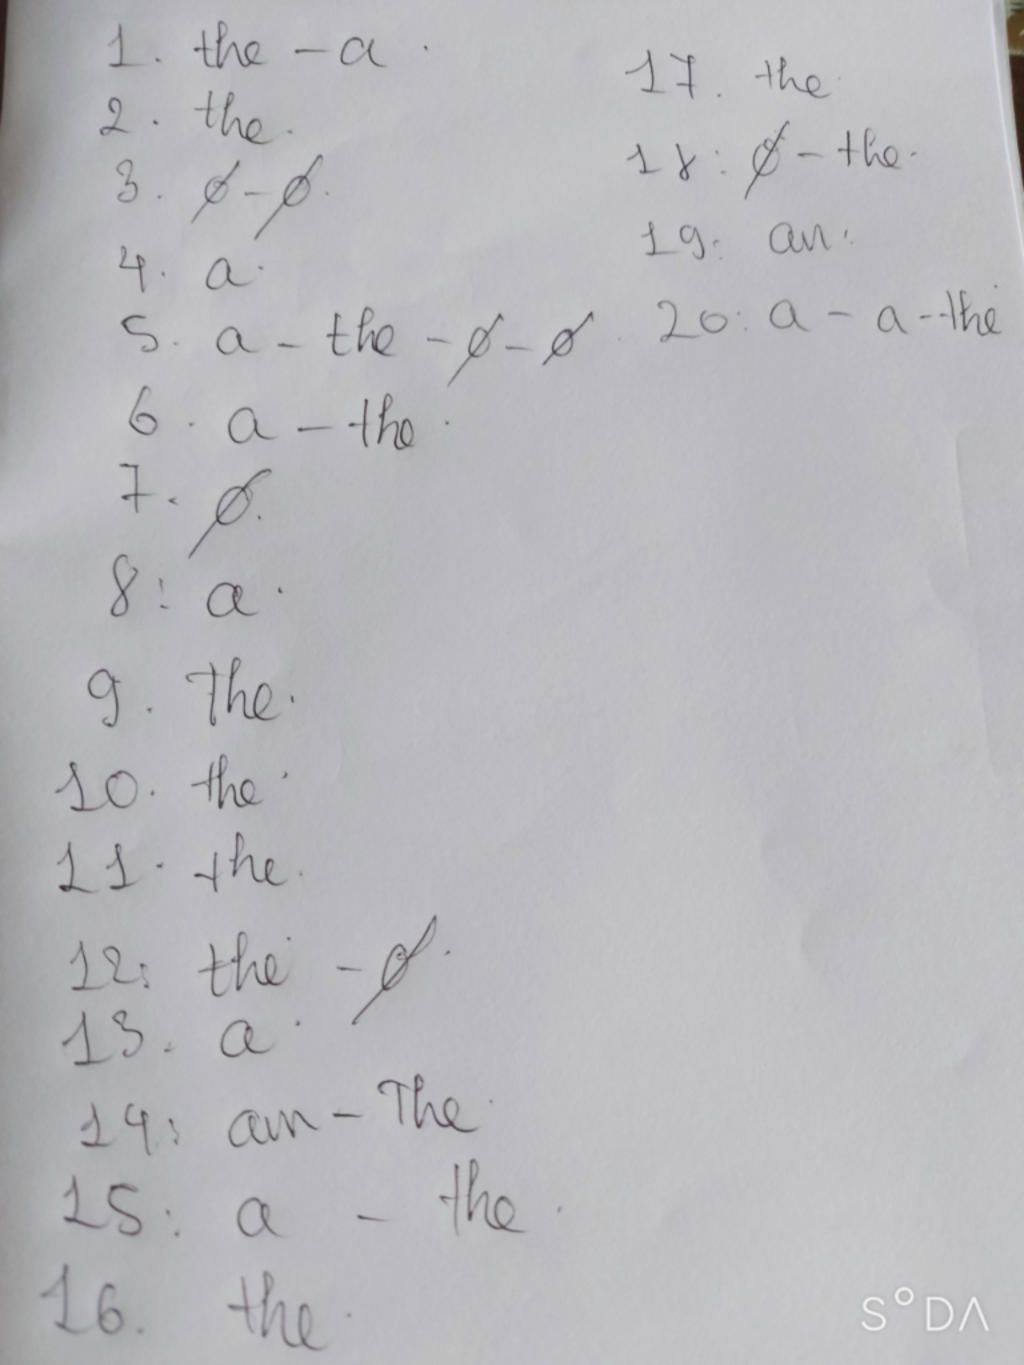 1. the - a.
2. the.
3. ∅ - ∅.
4. a.
5. a - the - ∅ - ∅.
6. a - the.
7. ∅.
8: a.
9. The.
10. the.
11. the.
12: the - ∅.
13. a.
14: an - The.
15: a - the.
16. the.
17. the.
18: ∅ - the.
19: an.
20: a - a - the
S°DA